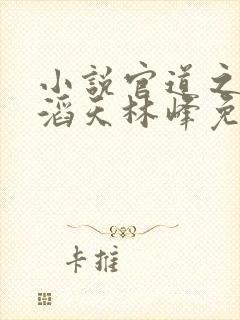 小说官道之
滔天林峰免
卡推